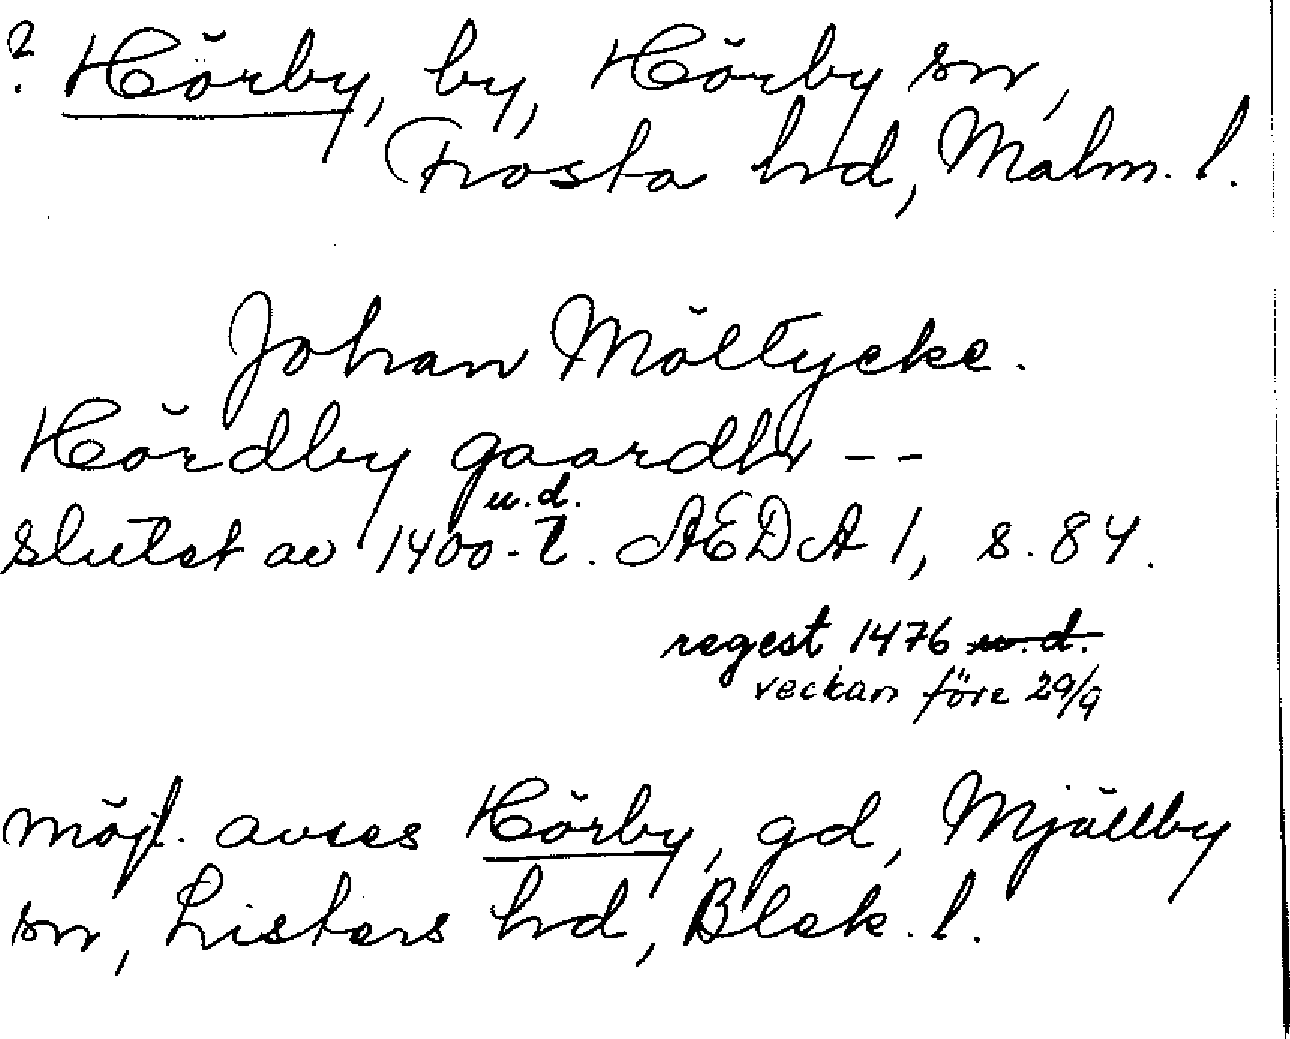 ? Hörby, by, Hörby sn,
Frosta hd, Malm. l.
Johan Möltycke.
Hördby gaardh --
u.d.
slutet av 1400-t. AEDA 1, s. 84.
regest 1476 u.d.
veckan före 29/9
möjl. avses Hörby, gd, Mjällby
sn, Listers hd, Blek. l.